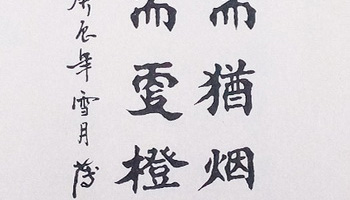 而猶烟
而橙
庚辰年雪月